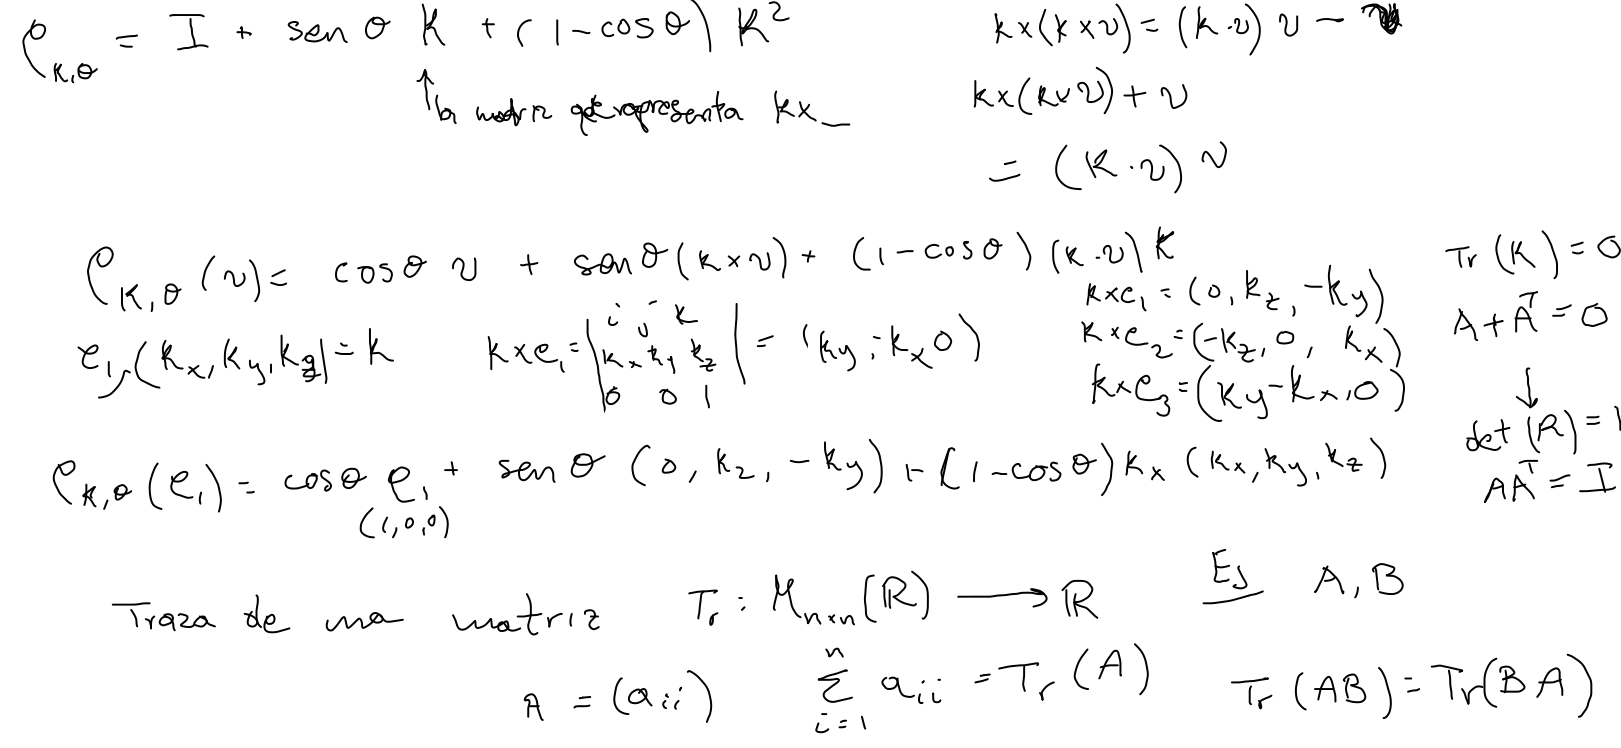 ρ_{K,θ} = I + sen θ K + (1-cos θ) K²
↑ la matriz que representa kx_
kx(kxv) = (k·v) v -
kx(kxv) + v
= (k·v) v
ρ_{K,θ}(v) = cos θ v + sen θ (kxv) + (1-cos θ) (k·v) k
e₁, (kx, ky, kz) = k
kxe₁ = | i j k |
| kx ky kz |
| 0 0 1 | = (ky, -kx 0)
kxe₁ = (0, kz, -ky)
kxe₂ = (-kz, 0, kx)
kxe₃ = (ky -kx, 0)
Tr (K) = 0
A + Aᵀ = 0
↓
det (R) = 1
AAᵀ = I
ρ_{K,θ}(e₁) = cos θ e₁ + sen θ (0, kz, -ky) + (1-cos θ) kx (kx, ky, kz)
(1,0,0)
Traza de una matriz Tr : M_{nxn}(ℝ) → ℝ
A = (aᵢᵢ) ∑_{i=1}^{n} aᵢᵢ = Tr (A)
Ej A, B
Tr (AB) = Tr(BA)